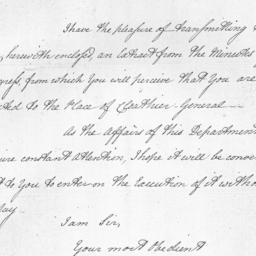 I have the pleasure of transmitting
herewith enclosed, an Extract from the Minutes
from which You will perceive that You are
to the Place of Cloathier-General
As the Affairs of this Department
constant attention, I hope it will be
to You to enter on the Execution of it
I am Sir,
Your most Obedient